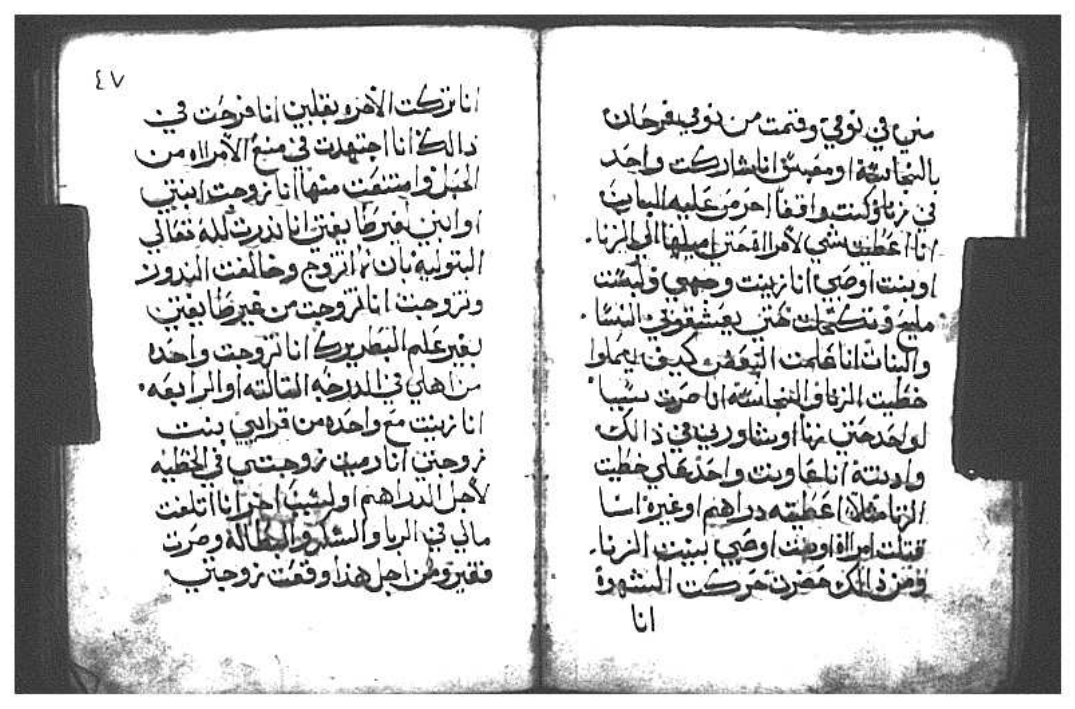 مني في نومي وقمت من نومي فرحان
بالنجاسة او مغبش انا شاركت واحد
في زناؤ كنت واقفا احرص عليه الباب
انا اعطيت شي لامراة حتي اميلها الي الزنا.
او بنت او صبي انا زينت وجهي ولبست
مليح وتكحلت حتي يعشقوني النسا.
والبنات انا علمت البعض كيف يعملوا
خطيت الزنا والنجاسة انا صرت سببا
لواحد حتي زنا او شاورني في ذالك
وادنته انا عاونت واحد علي خطيت
الزنا مثلا اعطيته دراهم او غيره انا
قتلت امراة او بنت او صبي بسبب الزنا.
ومن ذالك حركت الشهوة
انا
٤٧
انا تركت الامره بقلبي انا فرحت في
ذالك انا اجتهدت في منع الامراه من
الحبل وامتنعت منها انا زوجت ابنتي
او ابني بغير طايفتي انا ندرت لله تعالي
البتوليه بان لا اتزوج وخالفت الندور
وتزوجت انا تزوجت من غير طايفتي
بغير علم البطريرك انا تزوجت واحده
من اهلي في الدرجه التالته او الرابعه.
انا زنيت مع واحده من قرايبي بنت
زوجتي انا رميت زوجتي في الخطيه
لاجل الدراهم او لسبب اخر انا اتلفت
مالي في الزنا والسكر والبطالة وصرت
فقير ومن اجل هذا وقعت زوجتي